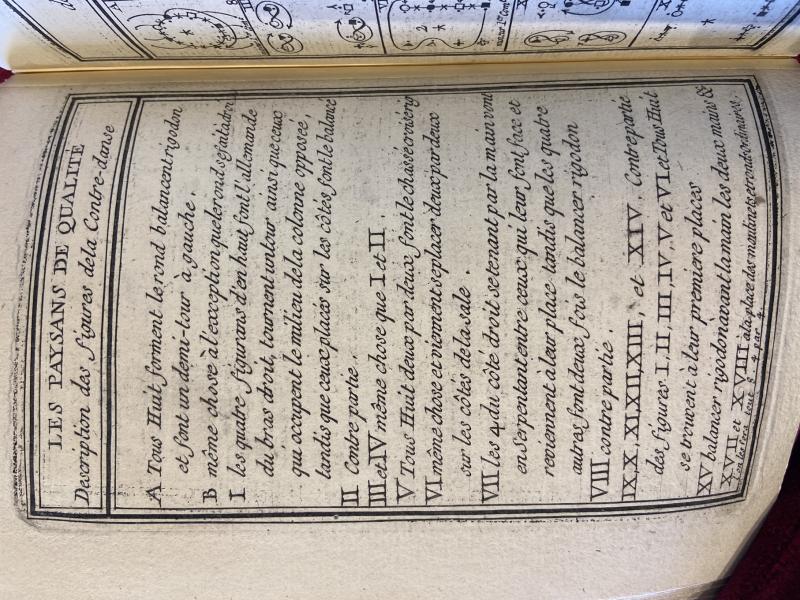 LES PAYSANS DE QUALITÉ
Description des figures dela Contre-danse
A Tous Huit forment le rond balancent rigodon
et font un demi-tour à gauche.
B même chose à l'exception que le rond se fait à droit
I les quatre figurans d'en haut font l'allemande
du bras droit, tournent un tour ainsi que ceux
qui occupent le milieu de la colonne opposée,
tandis que ceux placés sur les côtés font le balancé
II Contre partie.
III et IV même chose que I et II.
V Tous Huit deux par deux font le chassé croisé rig
VI même chose et viennent se placer deux par deux
sur les côtés de la sale.
VII les 4 du côté droit se tenant par la main vont
en serpentant entre ceux qui leur font face et
reviennent à leur place tandis que les quatre
autres font deux fois le balancer rigodon
VIII contre partie.
IX, X, XI, XII, XIII, et XIV, Contre partie
des figures I, II, III, IV, V et VI et Tous Huit
se trouvent à lair premiere places
XV balancer rigodon avant la main les deux mains &
XVII et XVIII à la place des moulinets et ronds ordinaires,
tout 8. 4 par 4